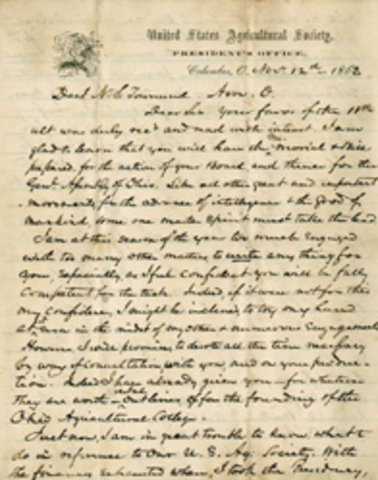 United States Agricultural Society,
PRESIDENT'S OFFICE,
Columbus, O. Nov. 12th 1862
N. S. Townsend Avon. O.
Dear Sir your favor of the 10th
ult was duly rec'd and read with interest. I am
glad to learn that you will have the Memorial & Bill
prepared for the action of your Board, and thence for the
Genl Assembly of Ohio. Like all other great and important
movements for the advance of intelligence & the good of
mankind, some one master spirit must take the lead
I am at this season of the year too much engaged
with too many other matters to write any thing for
you, especially, as I feel confident you will be fully
competent for the task. Indeed, if it were not for this
my confidence, I might be inclined to try my hand
at, even in the midst of my other & numerous engagements
However, I will promise to devote all the time necessary
by way of consultation with you, and on your produc-
tion. Indeed I have already given you for whatever
they are worth outlines of for the founding of the
Ohio Agricultural College.
Just now, I am in great trouble to know what to
do in reference to Our U. S. Ag. Society. With
the finances exhausted when I took the Presidency,